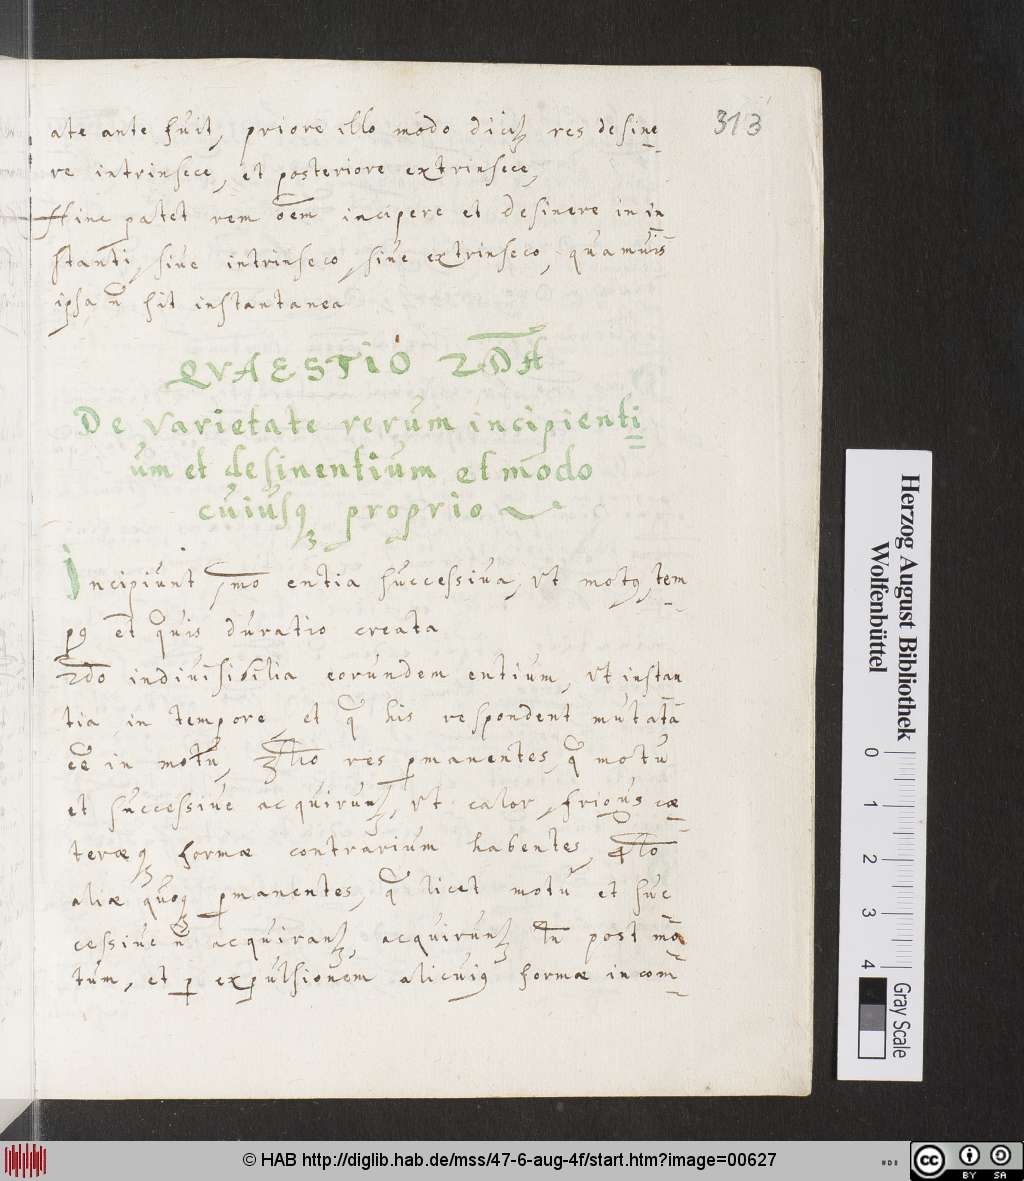 313
ate ante fuit, priore illo modo dicitꝫ res desine
re intrinsece, et posteriore extrinsece,
Hinc patet rem oēm incipere et desinere in in
stanti, siue intrinseco, siue extrinseco, quamuis
ipsa ñ sit instantanea
QVAESTIO 2DA
De varietate rerum incipienti
um et desinentium et modo
cuiusqꝫ proprio
Incipiunt pmo entia successiua, vt motꝰ, tem
pꝰ et quis duratio creata
2do indiuisibilia eorundem entium, vt instan
tia in tempore, et q̃ his respondent mutata
eē in motu, 3tio res ꝑmanentes, q̃ motu
et successiue acquirunꝫ, vt calor, frigus cæ
teræqꝫ formæ contrarium habentes, 4to
aliæ quoqꝫ ꝑmanentes, q̃ licet motu et suc
cessiue ñ acquiranꝫ, acquirunꝫ tñ post mo
tum, et ꝑ expulsionem alicuiꝰ formæ incom
Herzog August Bibliothek
Wolfenbüttel
0 1 2 3 4
Gray Scale
© HAB http://diglib.hab.de/mss/47-6-aug-4f/start.htm?image=00627
HAB
cc BY SA